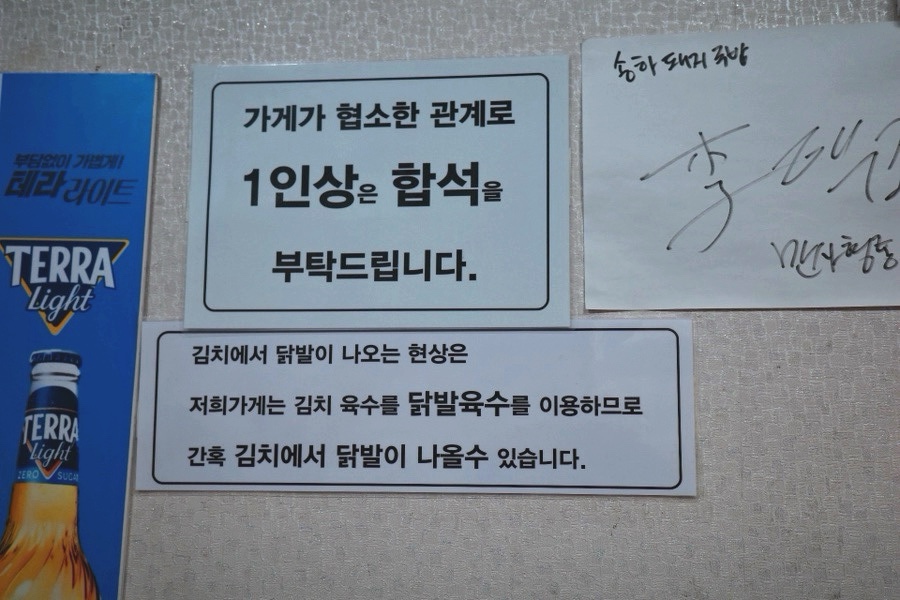 부담없이 가볍게!
테라 라이트
TERRA
Light
TERRA
Light
ZERO SUGAR
가게가 협소한 관계로
1인상은 합석을
부탁드립니다.
김치에서 닭발이 나오는 현상은
저희가게는 김치 육수를 닭발육수를 이용하므로
간혹 김치에서 닭발이 나올수 있습니다.
송하 돼지국밥
李